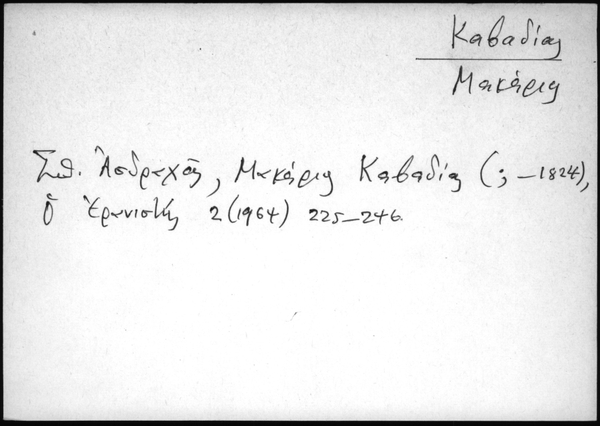 Καβαδίας
Μακάριος
Σπ. Ἀσδραχᾶς, Μακάριος Καβαδίας (; – 1824),
Ὁ Ἐρανιστής 2 (1964) 225–246.